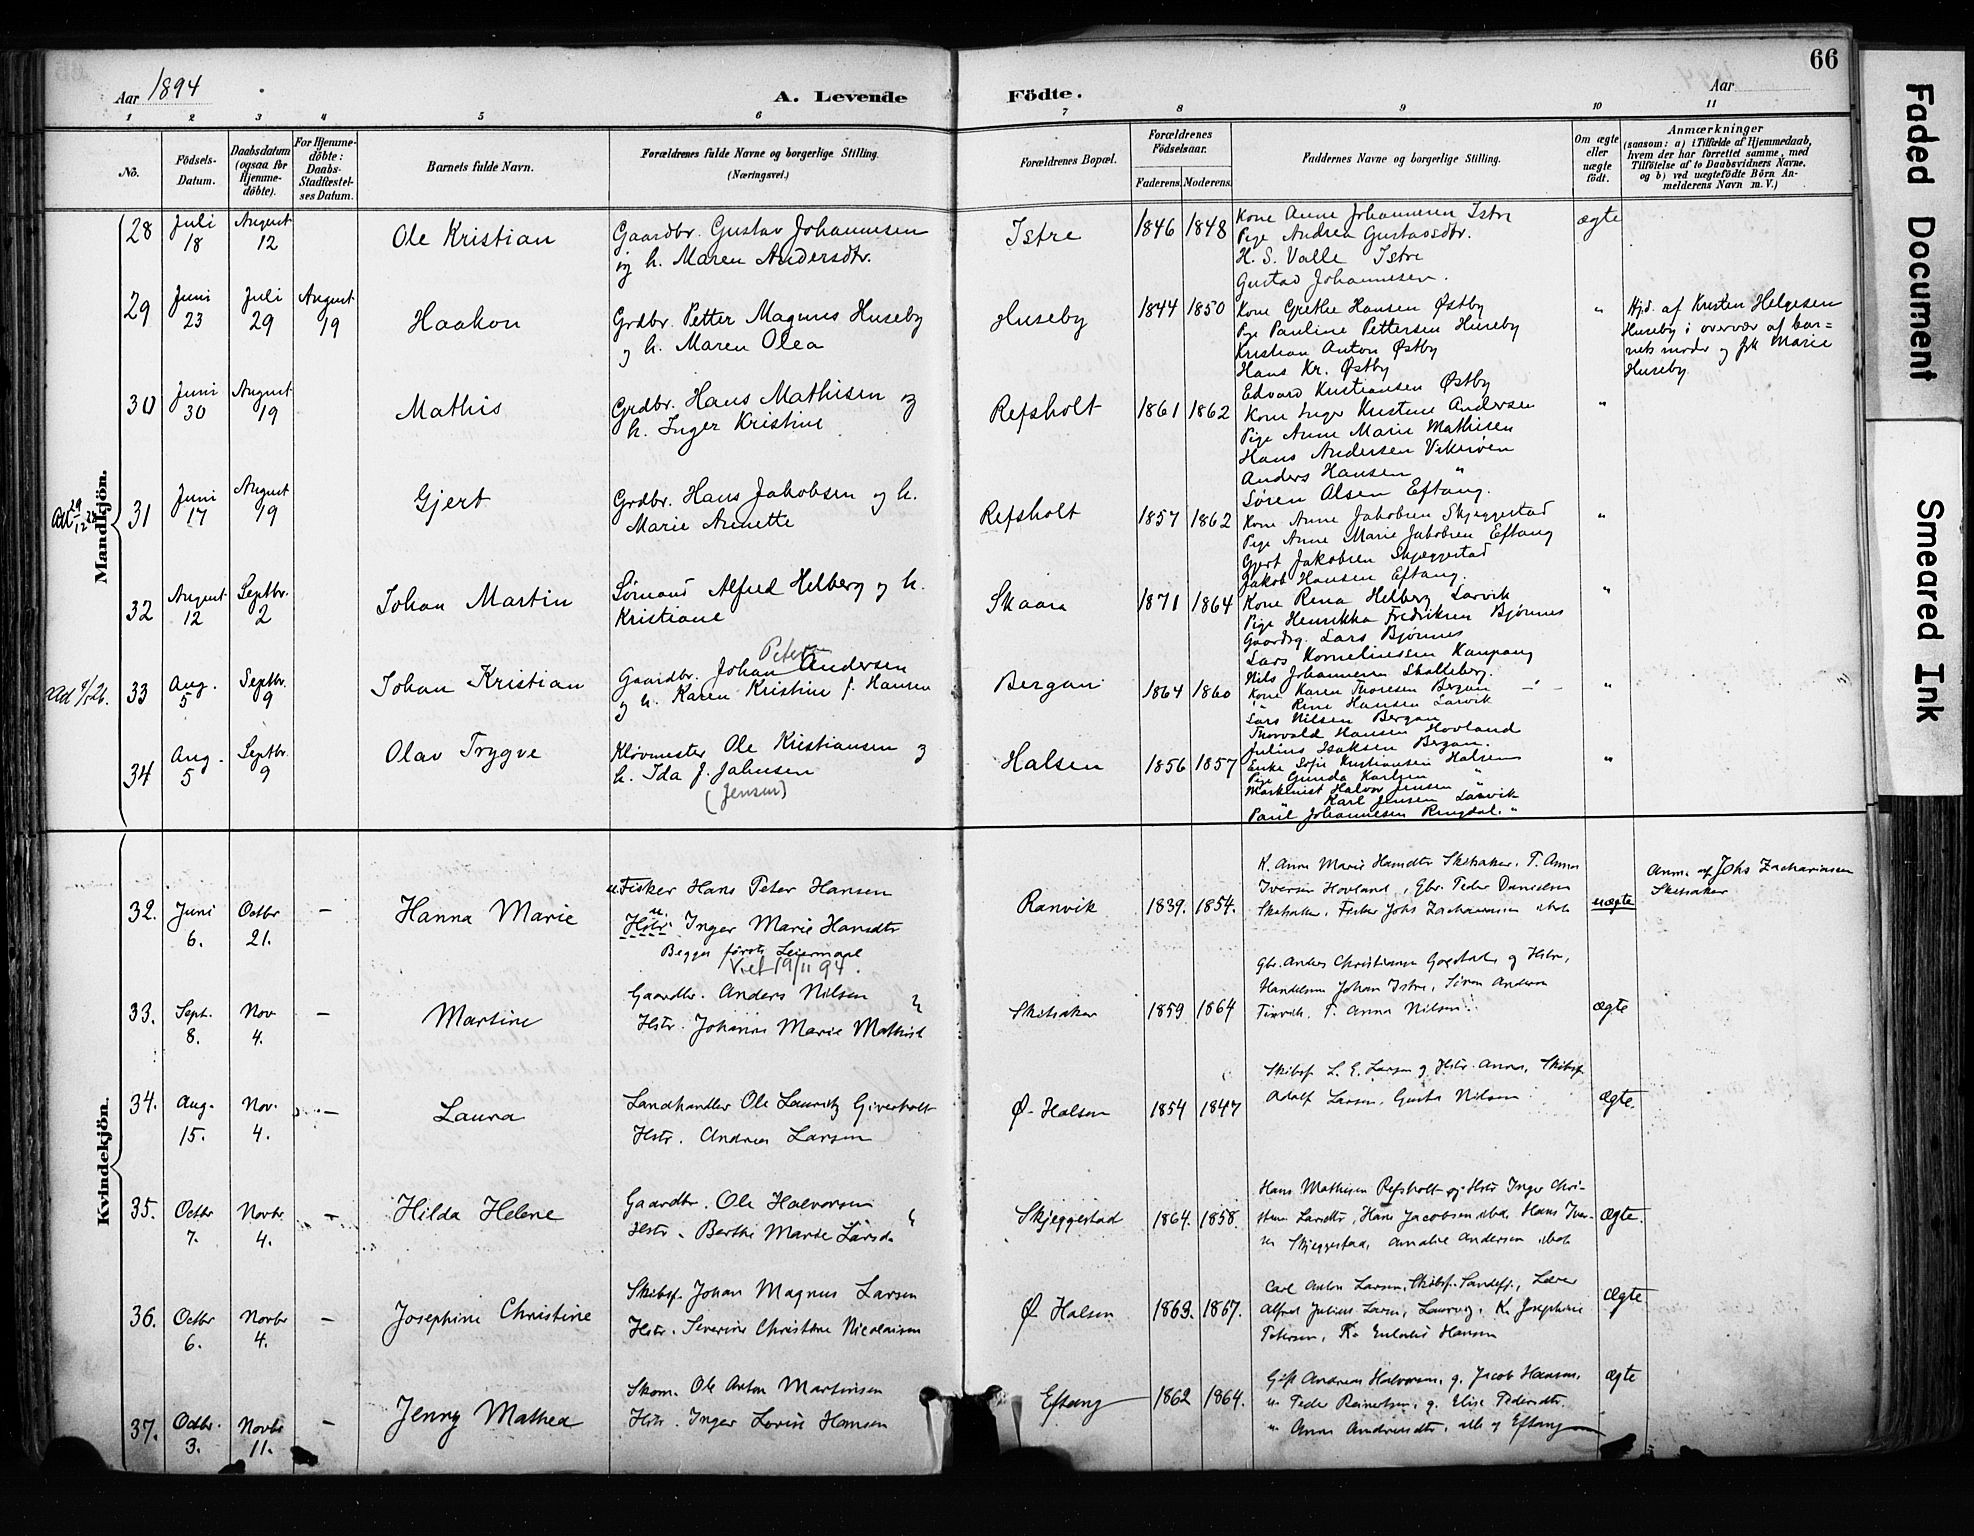 66
Aar 1894
A. Levende Födte.
Aar
1 2 3 4 5 6 7 8 9 10 11
No.
Födsels-Datum.
Daabsdatum (ogsaa for Hjemme-döbte).
For Hjemme-döbte: Daabs-Stadfæstel-ses Datum.
Barnets fulde Navn.
Forældrenes fulde Navne og borgerlige Stilling.
(Næringsvei.)
Forældrenes Bopæl.
Forældrenes Födselsaar.
Faderens. Moderens.
Faddernes Navne og borgerlige Stilling.
Om ægte eller uægte födt.
Anmærkninger
(saasom: a) i Tilfælde af Hjemmedaab,
hvem der har forrettet samme, med
Tilföielse af to Daabsvidners Navne.
og b) ved uægtefödte Börn An-
melderens Navn m. V.)
Mandkjön.
28 Juli 18 August 12 Ole Kristian
Gaardbr. Gustav Johannesen
og h. Maren Andersdtr.
Istre 1846 1848
Kone Anne Johannesen Istre
Pige Andrea Gustavsdtr.
H. S. Valle Istre
Gustav Johannesen.
ægte
29 Juni 23 Juli 29 August 19 Haakon
Grdbr. Petter Magnus Huseby
og h. Maren Olea
Huseby 1844 1850
Kone Grethe Hansen Østby
Pige Pauline Pettersen Huseby
Kristian Anton Østby
Hans Kr. Østby
Edvard Kristiansen Østby
"
Hjd. af Kristen Helgesen
Huseby i overvær af bar=
nets moder og frk Marie
Huseby
30 Juni 30 August 19 Mathis
Grdbr. Hans Mathisen og
h. Inger Kristine
Refsholt 1861 1862
Kone Inger Kristine Andersen
Pige Anne Marie Mathisen
Hans Andersen Vikerøen
Anders Hansen "
Søren Olsen Eftang.
"
31 Juni 17 August 19 Gjert
Grdbr. Hans Jakobsen og h.
Marie Annette
Refsholt 1857 1862
Kone Anne Jakobsen Skjeggestad
Pige Anne Marie Jakobsen Eftang
Gjert Jakobsen Skjeggestad
Jakob Hansen Eftang.
"
32 August 12 Septbr. 2 Johan Martin
Sømand Alfred Helberg og h.
Kristiane
Skaara 1871 1864
Kone Rena Helberg Larvik
Pige Henrikka Fredriksen Bjønnes
Gaardsg. Lars Bjønnes
Lars Korneliussen Kaupang
Nils Johannesen Skalleberg.
"
33 Aug. 5 Septbr. 9 Johan Kristian
Peter
Gaardbr. Johan Andersen
og h. Karen Kristine f. Hansen
Bergan 1864 1860
Kone Karen Thoresen Bergan
" Rine Hansen Larvik
Lars Nilsen Bergan
Thorvald Hansen Hovland
Julius Isaksen Bergan.
"
34 Aug. 5 Septbr. 9 Olav Trygve
Kløvmester Ole Kristiansen og
h. Ida J. Jahnsen
(Jensen)
Halsen 1856 1857
Enke Sofie Kristiansen Halsen
Pige Gunda Karlsen "
Maskinist Halvor Jensen "
Karl Jensen Larvik
Paul Johannesen Ringdal. "
"
Kvindekjön.
32. Juni 6. Octbr 21. – Hanna Marie
Fisker Hans Peter Hansen
Hstr. Inger Marie Hansdtr
Begges første Leiermaal
Viet 19/11 94.
Ranvik 1839. 1854.
K. Anne Marie Hansdtr Skisaker, P. Anna
Iversen Hovland, Gbr. Peder Danielsen
Skisaker, Fisker Johs Zachariassen ibid
uægte
Anm. af Johs Zachariassen
Skisaker
33. Sept. 8. Nov. 4. – Martine
Gaardbr. Anders Nilsen
Hstr. Johanne Marie Mathisd
Skisaker 1859 1864
Gbr. Anders Christiansen Gogstad, og Hstr.,
Handelsm Johan Istre, Simon Andersen
P. Anna Nilsen
ægte
34. Aug. 15. Nov. 4. – Laura
Landhandler Ole Lauritz Giverholt
Hstr. Andrea Larsen
Ø. Halsen 1854 1847
Skibsf. L. E. Larsen og Hstr. Anna, Skibsf
Adolf Larsen, Gusta Nilsen
ægte.
35. Octbr 7. Novbr. 4. – Hilda Helene
Gaardbr. Ole Halvorsen
Hstr. Berthe Marie Larsd.
Skjeggestad 1864. 1858.
Hans Mathisen Refsholt og Hstr Inger Chri-
stine Larsdtr, Hans Jacobsen ibd. Hans Iver-
sen Skjeggestad, Amalie Andersen ibid
ægte.
36. Octbr 6. Novbr 4. – Josephine Christine
Skibsf. Johan Magnus Larsen
Hstr. Severine Christine Nicolaisen
Ø Halsen 1863. 1867.
Carl Anton Larsen, Skibsf. Sandefj., Lærer
Alfred Julius Larsen, Laurvig, K. Josephine
Petersen, K. Hansen
ægte
37. Octbr. 3. Novbr 11. – Jenny Mathea
Skom. Ole Anton Martinsen
Hstr. Inger Lovise Hansen
Eftang 1862 1864.
Gift Andreas Halvorsen, g. Jacob Hansen,
" Peder Reinertsen, g. Elise Pedersdtr
" Anna Andreasdtr, alle af Eftang
ægte
Faded Document
Smeared Ink